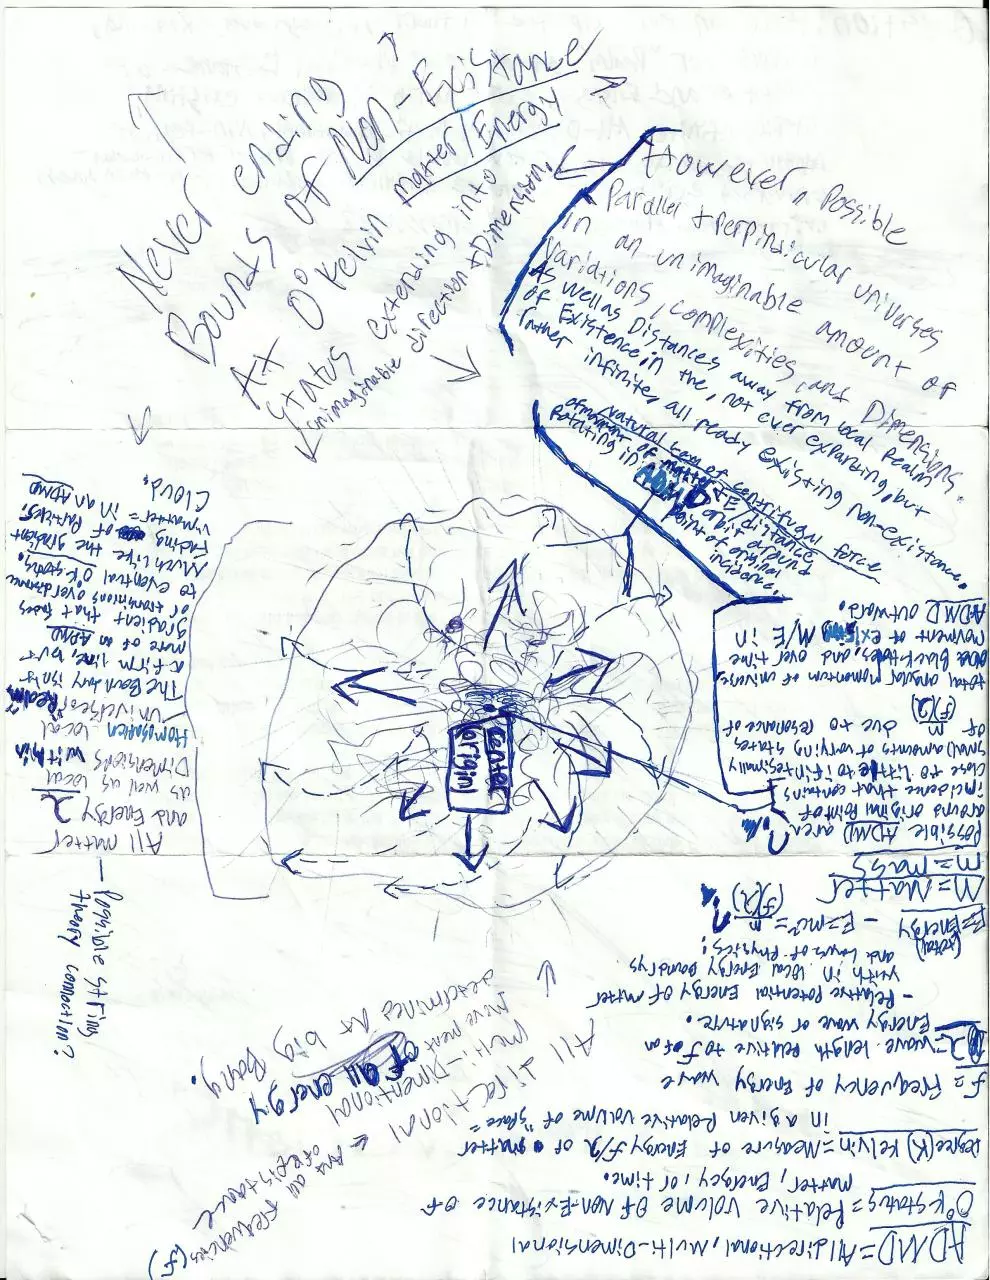 Never ending
Bounds of Non-Existance
At 0° Kelvin matter/Energy
status extending into
unimaginable direction & Dimension.
However, possible
parallel + perpindicular universes
in an unimaginable amount of
Variations, complexities, and Dimensions.
As well as Distances away from local Realm
of Existence, in the, not ever expanding, but
rather infinite, all ready existing non-existence.
Natural team of centrifugal force
of moment of matter + E, distance
Rotating in ADMD orbit around
Point of original
incidence.
Possible ADMD area
around original Point of
incidence that contains
close to little to infintesimally
small amounts of varying states
of m due to resonance of
(f/λ)
total angular momentum of universe
and Black holes, and over time
movement of existing M/E in
ADMD outward.
Center
origin
All matter
and Energy
as well as local
Dimensions within
local
universe or Realm
The Boundary isn't
a firm line, but
more of an ADMD
gradient that fades
or transitions over distance
to eventual 0°K status.
Much like the gradient
Fading of Particles.
matter = in an ADMD
Cloud.
— Possible string
theory connection?
All directional &
multi-Dimentional
movement of all energy
determined as big Bang.
and all Frequencies (f)
of existance
m = mass
M = Matter
E = Energy (total) - E=mc² = m (f/λ)
- Relative Potential Energy of matter
with in local Energy boundrys
and Laws of Physics!
λ = wave length relative to f of an
Energy wave or signature.
f = frequency of Energy wave
Degree (K) Kelvin = Measure of Energy f/λ of matter
in a given Relative volume of "space"
0°K status = Relative volume of Non-Existance of
matter, Energy, or time.
ADMD = All directional, Multi-Dimensional